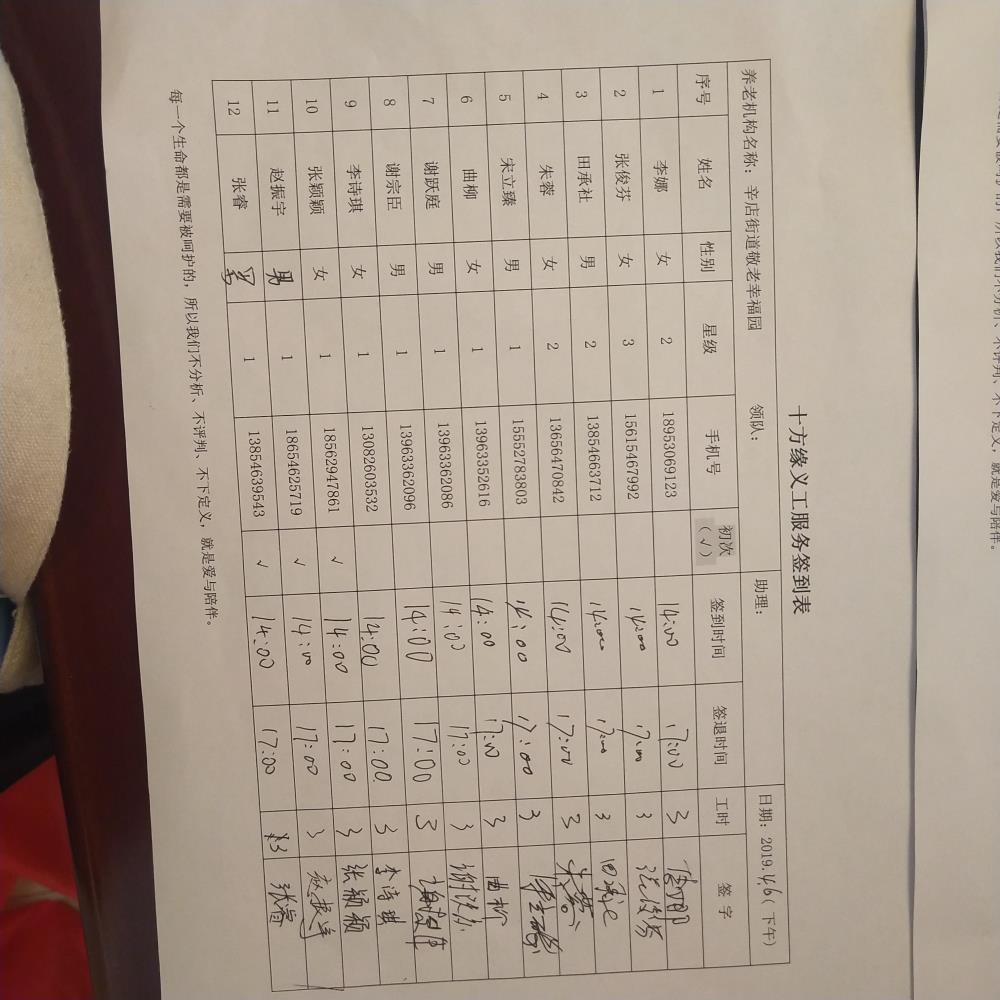 十方缘义工服务签到表
养老机构名称：辛店街道敬老幸福园 领队： 助理： 日期：2019.4.6（下午）
序号 姓名 性别 星级 手机号 初次（√） 签到时间 签退时间 工时 签字
1 李娜 女 2 18953069123 14:00 17:00 3 李娜
2 张俊芬 女 3 15615467992 14:00 17:00 3 张俊芬
3 田承社 男 2 13854663712 14:00 17:00 3 田承社
4 朱蓉 女 2 13656470842 14:00 17:00 3 朱蓉
5 宋立臻 男 1 15552783803 14:00 17:00 3
6 曲柳 女 1 13963352616 14:00 17:00 3 曲柳
7 谢跃庭 男 1 13963362086 14:00 17:00 3
8 谢宗臣 男 1 13963362096 14:00 17:00 3
9 李诗琪 女 1 13082603532 14:00 17:00 3 李诗琪
10 张颖颖 女 1 18562947861 √ 14:00 17:00 3 张颖颖
11 赵振宇 男 1 18654625719 √ 14:00 17:00 3 赵振宇
12 张睿 男 1 13854639543 √ 14:00 17:00 3 张睿
每一个生命都是需要被呵护的，所以我们不分析、不评判、不下定义，就是爱与陪伴。
不评判、不下定义，就是爱与陪伴。